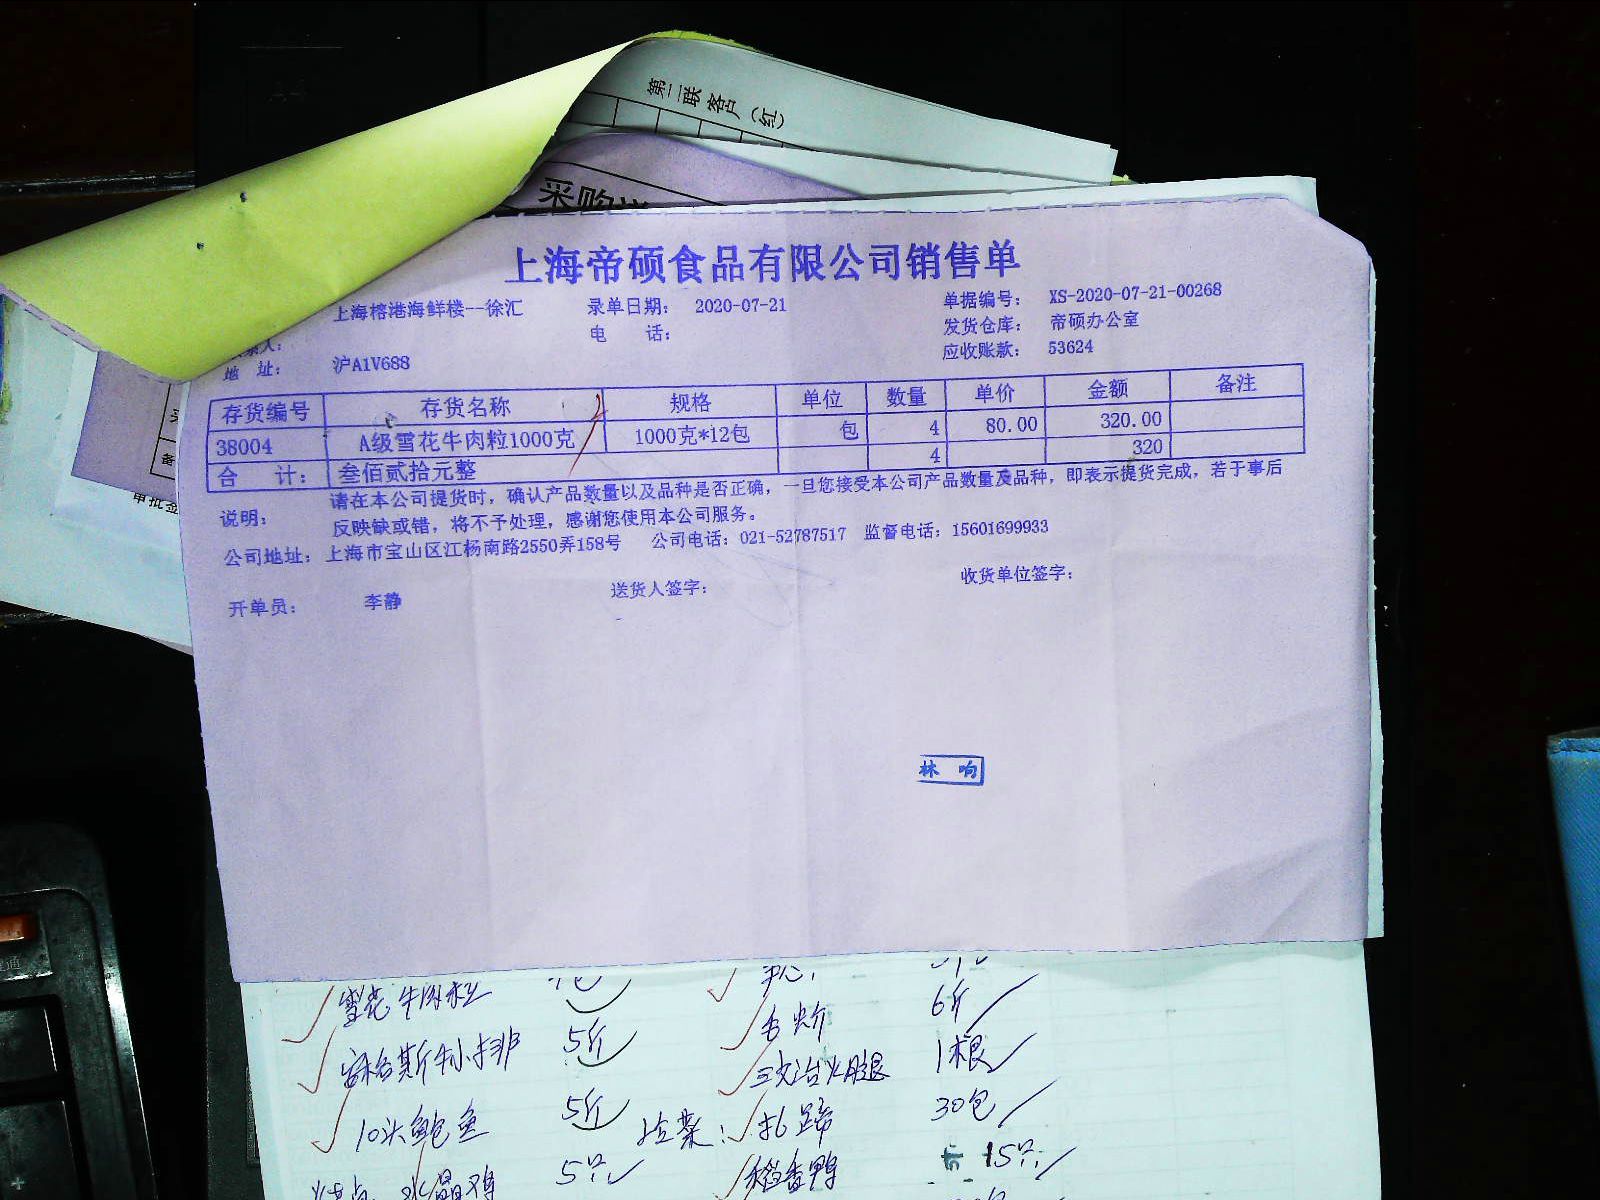 第二联客户（红）
采购
上海帝硕食品有限公司销售单
上海榕港海鲜楼--徐汇 录单日期： 2020-07-21 单据编号： XS-2020-07-21-00268
电 话： 发货仓库： 帝硕办公室
地 址： 沪A1V688 应收账款： 53624
存货编号 存货名称 规格 单位 数量 单价 金额 备注
38004 A级雪花牛肉粒1000克 1000克*12包 包 4 80.00 320.00
合 计： 叁佰贰拾元整 4 320
说明： 请在本公司提货时，确认产品数量以及品种是否正确，一旦您接受本公司产品数量及品种，即表示提货完成，若于事后
反映缺或错，将不予处理，感谢您使用本公司服务。
公司地址： 上海市宝山区江杨南路2550弄158号 公司电话：021-52787517 监督电话：15601699933
开单员： 李静 送货人签字： 收货单位签字：
林 响
雪花牛肉粒
6斤
安格斯牛小排 5斤 三文治火腿 1根
10头鲍鱼 5斤 30包
水晶鸡 5只 稻香鸭 15只